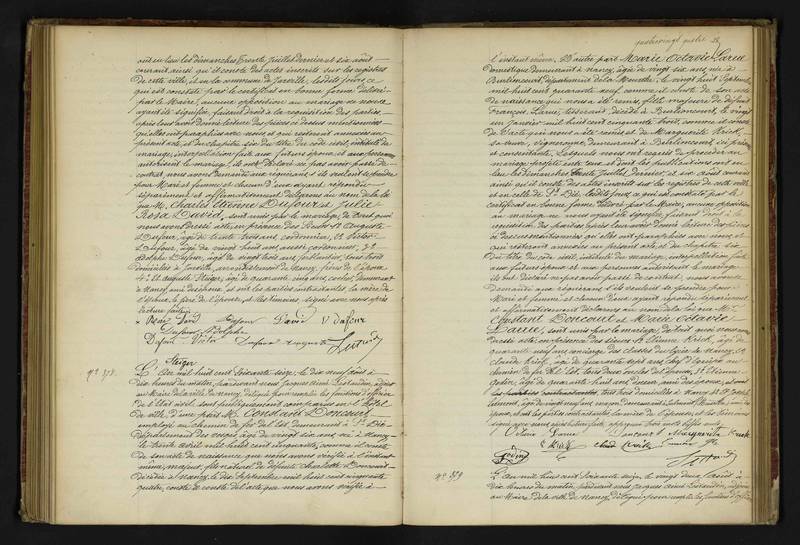 ont eu lieu les dimanches trente juillet dernier et six août
courant ainsi qu'il conste des actes inscrits sur les registres
de cette ville, et en la commune de Jarville, lesdits jours, ce
qui est constaté par le certificat en bonne forme délivré
par le Maire, aucune opposition au mariage ne nous
ayant été signifiée, faisant droit à la réquisition des parties,
après leur avoir donné lecture des pièces ci dessus mentionnées
qu'elles ont paraphées avec nous, et qui resteront annexées au
présent acte, et du chapitre six du titre du code civil, intitulé du
mariage, interpellation faite aux futurs époux, et aux personnes
autorisant le mariage, ils ont déclaré ne pas avoir passé de
contrat, nous avons demandé aux requérans s'ils veulent se prendre
pour Mari et femme et chacun d'eux ayant répondu
séparément et affirmativement déclarons au nom de la loi
que M. Charles Etienne Dufour et Julie
Rosa David, sont unis par le mariage, de tout quoi
nous avons dressé acte, en présence des Sieurs 1° Auguste
Dufour, âgé de trente trois ans, cordonnier, 2° Victor
Dufour, âgé de vingt huit ans, aussi cordonnier, 3°
Adolphe Dufour, âgé de vingt trois ans, ferblantier, tous trois
domiciliés à Jarville, arrondissement de Nancy, frères de l'époux
4° et Auguste Steiger, âgé de quarante cinq ans, cocher, demeurant
à Nancy, ami des époux, et ont les parties contractantes, la mère de
l'épouse, le père de l'époux, et les témoins signé avec nous après
lecture faite
Rosa David Dufour David V Dufour
Dufour Adolphe
Dufour Victor Dufour Auguste
Steiger
N° 378.
L'An mil huit cent soixante seize, le dix neuf août à
dix heures du matin, pardevant nous Jacques Aimé Lestaudin, adjoint
au Maire de la ville de Nancy, délégué pour remplir les fonctions d'officier
de l'état civil, sont publiquement comparus en l'Hôtel
de ville, d'une part M. Constant Doncourt
employé au chemin de fer de l'est, demeurant à St. Dié
département des Vosges, âgé de vingt six ans, né à Nancy
le trente avril mil huit cent cinquante, comme il conste
de son acte de naissance que nous avons vérifié à l'instant
même, majeur, fils naturel de défunte Charlotte Doncourt
décédée à Nancy, le dix Septembre mil huit cent cinquante
quatre, comme le conste de l'acte que nous avons vérifié à
l'instant même, D'autre part Marie Octavie Larue
domestique demeurant à Nancy, âgée de vingt six ans, née à
Burlioncourt, département de la Meurthe, le vingt huit Septembre
mil huit cent quarante neuf comme il conste de son acte
de naissance qui nous a été remis, fille majeure de défunt
François Larue, tisserand, décédé à Burlioncourt, le vingt
un janvier mil huit cent cinquante trois, comme il conste
de l'acte qui nous a été remis et de Marguerite Krick,
sa veuve, vigneronne, demeurant à Burlioncourt, ici présente
et consentante, Lesquels nous ont requis de procéder au
mariage projeté entre eux et dont les publications ont eu
lieu les Dimanches trente juillet dernier et six août courant
ainsi qu'il conste des actes inscrits sur les registres de cette ville
et en celle de St. Dié, lesdits jours, ce qui est constaté par le
certificat en bonne forme délivré par le Maire, aucune opposition
au mariage ne nous ayant été signifiée, faisant droit à la
réquisition des parties, après leur avoir donné lecture des pièces
ci dessus mentionnées qu'elles ont paraphées avec nous, et
qui resteront annexées au présent acte, et du chapitre six
du titre du code civil, intitulé du mariage, interpellation faite
aux futurs époux et aux personnes autorisant le mariage,
ils ont déclaré ne pas avoir passé de contrat, nous avons
demandé aux requérans s'ils veulent se prendre pour
Mari et femme et chacun d'eux ayant répondu séparément
et affirmativement déclarons au nom de la loi que M.
Constant Doncourt et Marie Octavie
Larue, sont unis par le mariage, de tout quoi nous avons
dressé acte, en présence des Sieurs 1° Etienne Krick, âgé de
quarante neuf ans, concierge des classes du lycée de Nancy, 2°
Claude Krick, âgé de quarante sept ans, chef d'équipe au
chemin de fer de l'est, tous deux oncles de l'épouse, 3° Etienne
Godin, âgé de quarante huit ans, ami des époux,
tous trois domiciliés à Nancy 4° et Joseph
âgé de vingt neuf ans, demeurant à
époux, et ont les parties contractantes, la mère de l'épouse, et les témoins
signé avec nous après lecture faite, approuvé trois mots rayés nuls
Octavie Larue Doncourt Marguerite Krick
Krick Claude Krick
Godin
N° 379
L'An mil huit cent soixante seize, le vingt deux août à
dix heures du matin, pardevant nous Jacques Aimé Lestaudin, adjoint
au Maire de la ville de Nancy, délégué pour remplir les fonctions d'officier